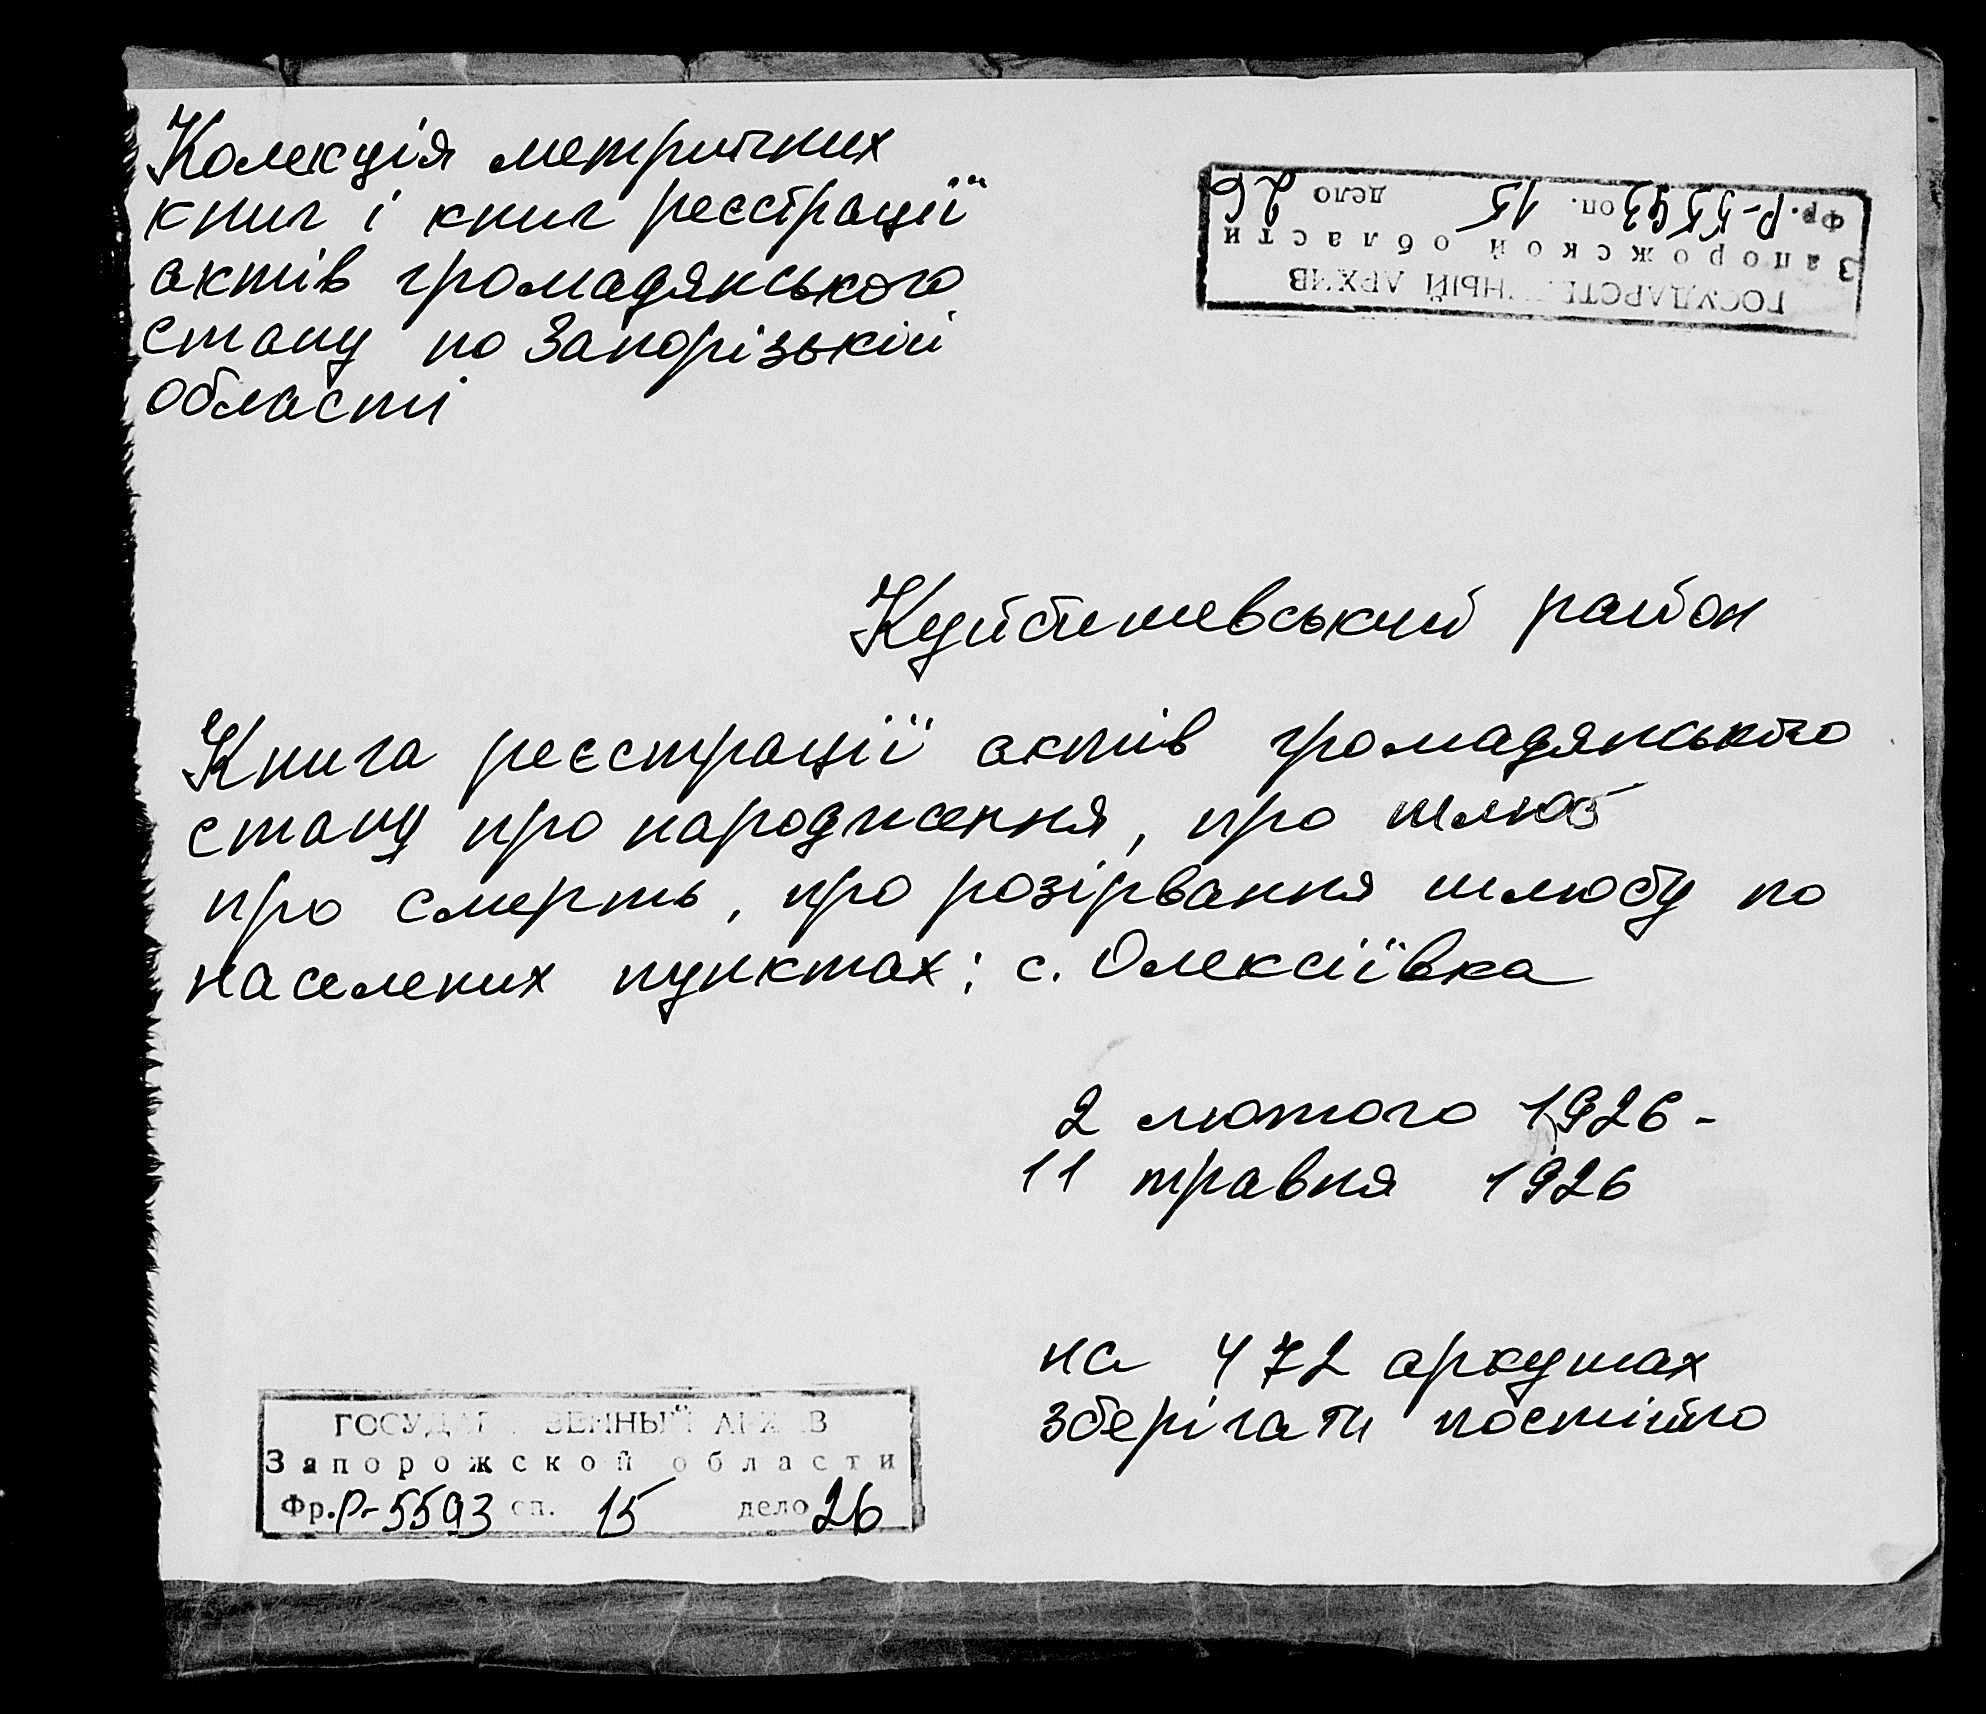 Колекція метричних
книг і книг реєстрації
актів громадянського
стану по Запорізькій
області
ГОСУДАРСТВЕННЫЙ АРХИВ
Запорожской области
Фр. Р-5593 оп. 15 дело 26
Куйбишевський район
Книга реєстрації актів громадянського
стану про народження, про шлюб
про смерть, про розірвання шлюбу по
населених пунктах: с. Олексіївка
2 лютого 1926 -
11 травня 1926
на 472 аркушах
зберігати постійно
ГОСУДАРСТВЕННЫЙ АРХИВ
Запорожской области
Фр. Р-5593 оп. 15 дело 26